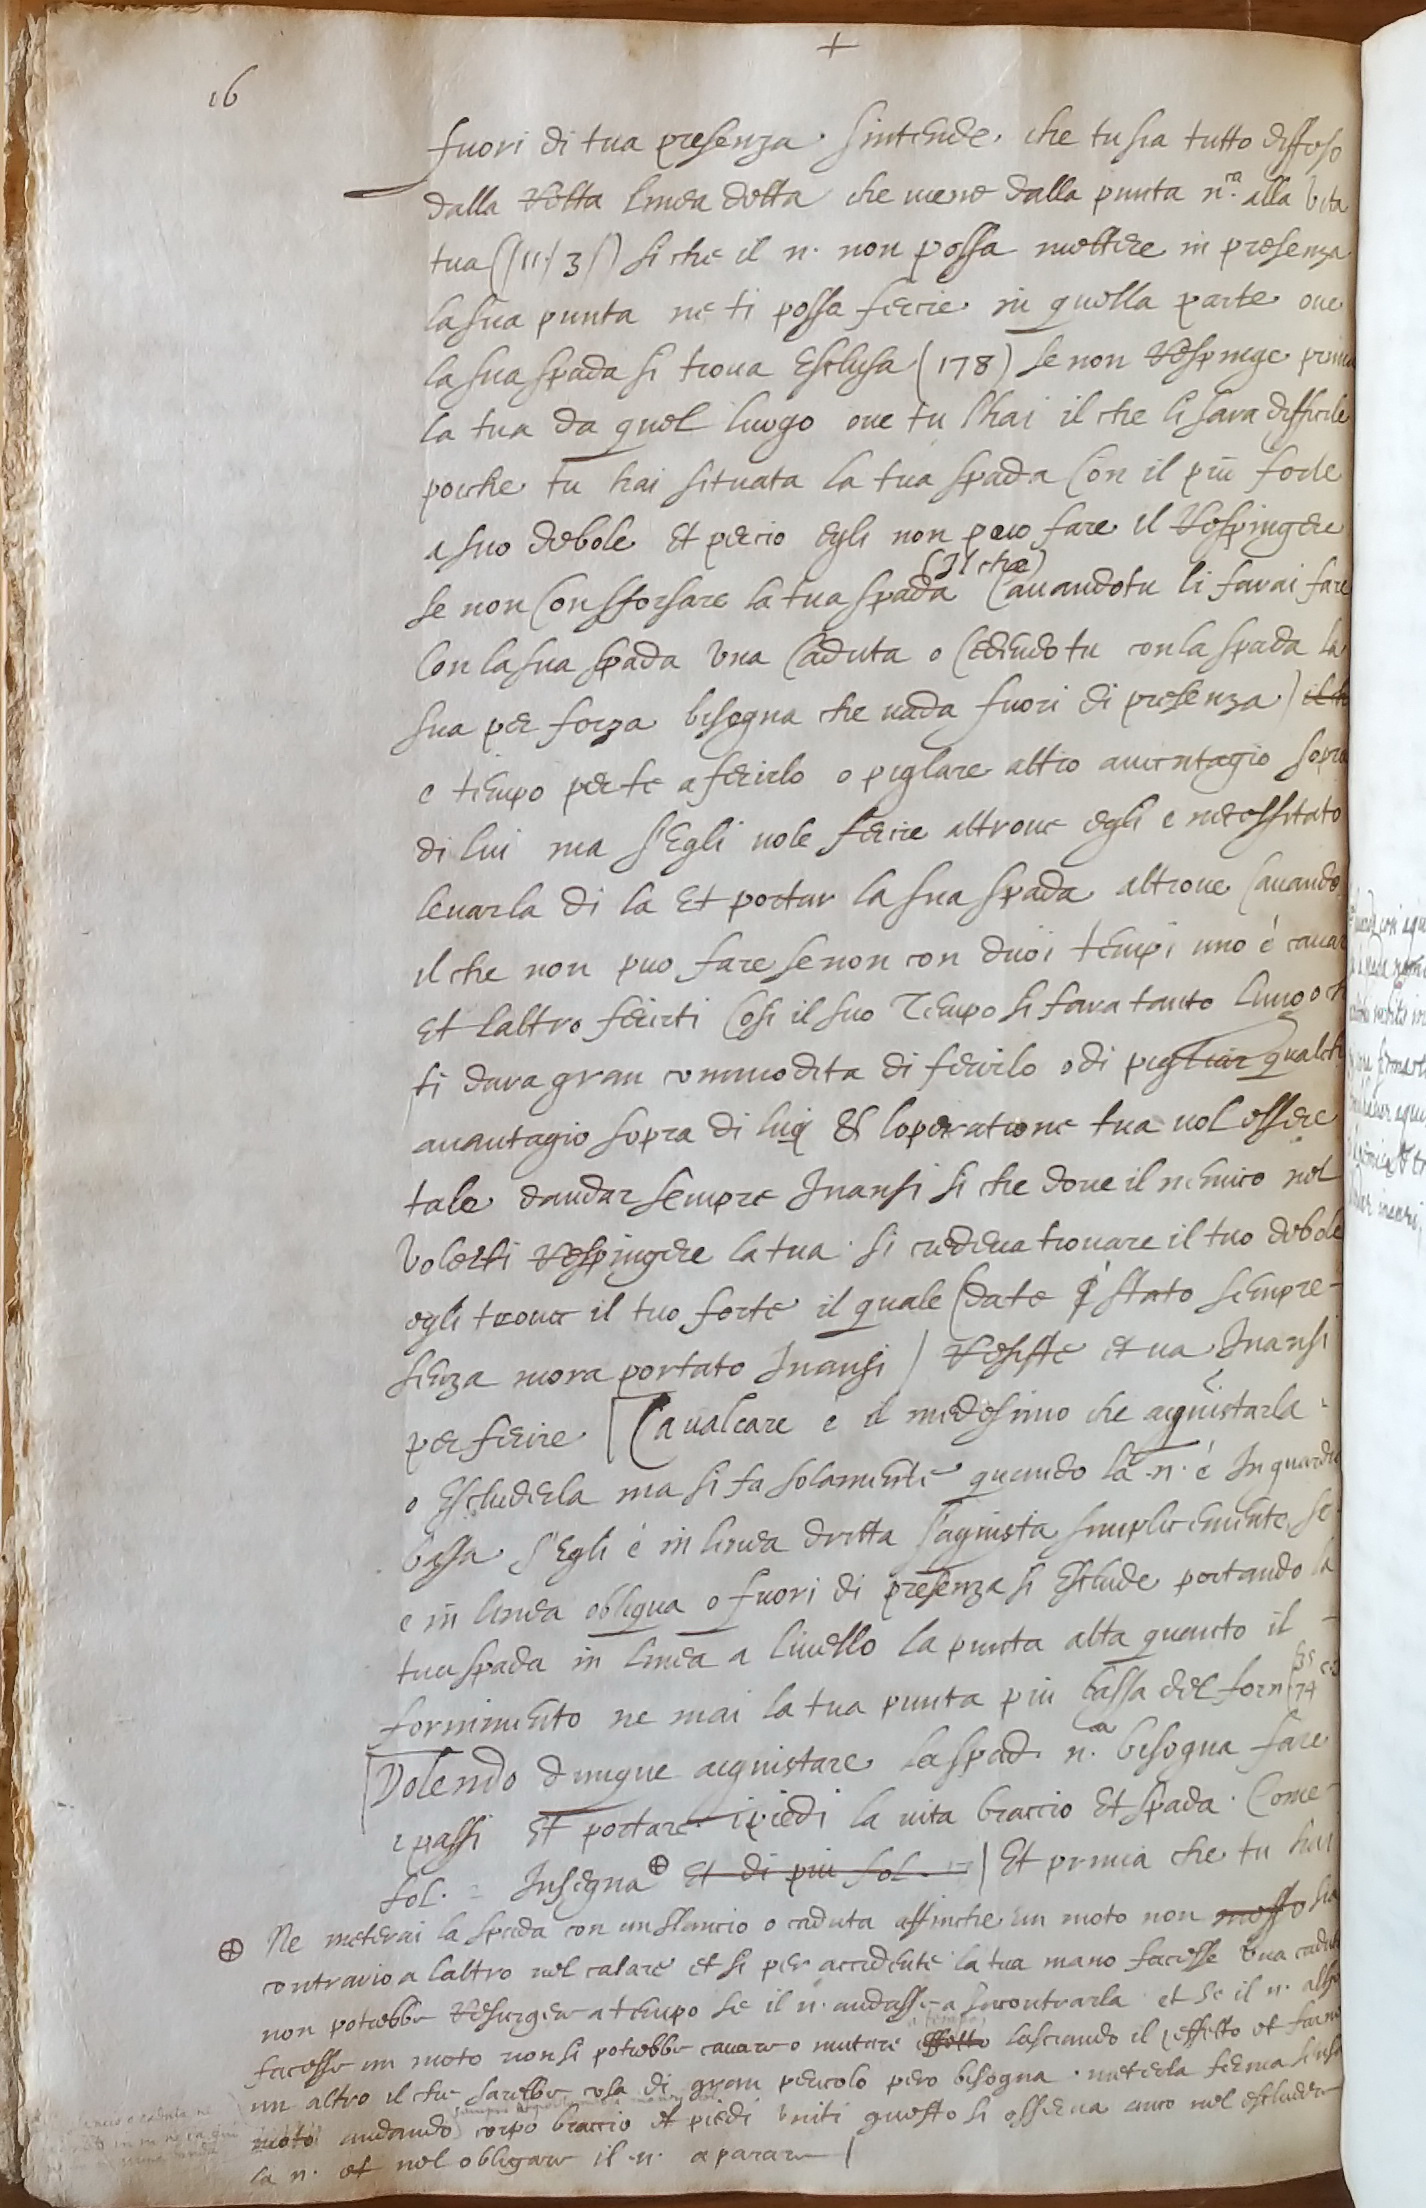 +
16
fuori di tua presenza. sintende. che tu sia tutto diffeso
dalla retta linea detta che viene dalla punta n.ra alla vita
tua (/11/3/) si che il n. non possa mettere in presenza
la sua punta ne ti possa ferire in quella parte oue
la sua spada si troua Esclusa (178) se non respinge prima
la tua da quel luogo oue tu l'hai il che li sara difficile
poiche tu hai situata la tua spada Con il piu forte
a suo debole Et percio egli non puo fare il respingere
(Il che)
se non Con sforsare la tua spada Cauandotu li farai fare
Con la sua spada una Caduta o Cedendo tu con la spada la
sua per forza bisogna che uada fuori di presenza)
e tempo per te a ferirlo o piglare altro auentagio sopra
di lui ma s'Egli uole ferire altroue egli e necessitato
leuarla di la Et portar la sua spada altroue Cauando
il che non puo fare se non con duoi tempi uno è cauar
Et laltro ferirti Cosi il suo Tempo si fara tanto lungo ch
ti dara gran commodita di ferirlo o di pigliar qualche
auantagio sopra di lui Et loperatione tua uol essere
tale d'andar sempre Inansi si che doue il nemico nel
Volerti respingere la tua. si credeua trouare il tuo debole
egli troua il tuo forte il quale (date è stato sempre
senza mora portato Inansi) resiste et ua Inansi
per ferire [Caualcare è il medesimo che acquistarla.
o Escluderla ma si fa solamente quando la n. é In guardia
bassa s'Egli é in linea dritta s'aquista simplicemente se
e in linea obliqua o fuori di presenza si Esclude portando la
tua spada in linea a liuello la punta alta quanto il
fornimento ne mai la tua punta piu bassa del forn. 35 74
Volendo dunque acquistare la spad. n.a bisogna fare
i passi Et portare i piedi la uita braccio Et spada. Come
fol. = Insegna ⊕ Et di piu fol. 17 / Et prima che tu hai
⊕ Ne meterai la spada con un slancio o caduta affinche un moto non mosso sia
contrario a laltro nel calare et si per accidente la tua mano facesse una caduta
non potrebbe resurgere a tempo se il n. andasse a incontrarla et se il n. alhora
a tempo
facesse un moto non si potrebbe cauare o mutare effetto lasciando il effetto et farne
un altro il che sarebbe cosa di gran pericolo pero bisogna. meterla ferma senza
moto andando corpo braccio et piedi uniti questo si osserua anco nel escludere
la n. et nel obligare il n. a parare /